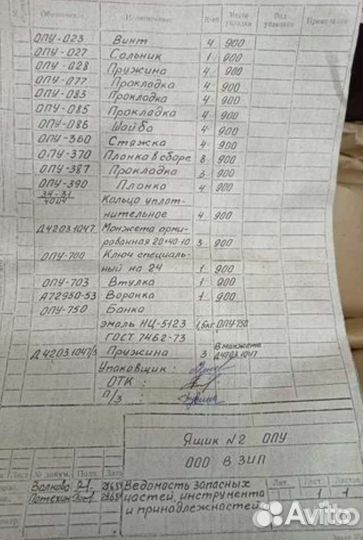 Обозначение Наименование Кол. Место укладки Вид упаковки Примечание
ОПУ-023 Винт 4 900
ОПУ-027 Сальник 1 900
ОПУ-028 Пружина 4 900
ОПУ-077 Прокладка 4 900
ОПУ-083 Прокладка 4 900
ОПУ-085 Прокладка 4 900
ОПУ-086 Шайба 4 900
ОПУ-360 Стяжка 4 900
ОПУ-370 Планка в сборе 8 900
ОПУ-387 Прокладка 6 900
ОПУ-390 Планка 4 900
Кольцо уплот-
нительное 4 900
Д4203.1047. Манжета арми-
рованная 20×40-10 3 900
ОПУ-700 Ключ специаль-
ный на 24 1 900
ОПУ-703 Втулка 1 900
А72950-53 Воронка 1 900
ОПУ-750 Банка
эмаль НЦ-5123 1,5кг ОПУ-750
ГОСТ 7462-73
Д4203.1047/3 Пружина 3 В манжета Д4203.1047
Упаковщик:
ОТК:
П/З:
Ящик N2 ОПУ
ООО В ЗИП
Лист № докум. Подп. Дата
Волкова
Потехин
Ведомость запасных
частей, инструмента
и принадлежностей
Лит. Лист Листов
1 1
Avito